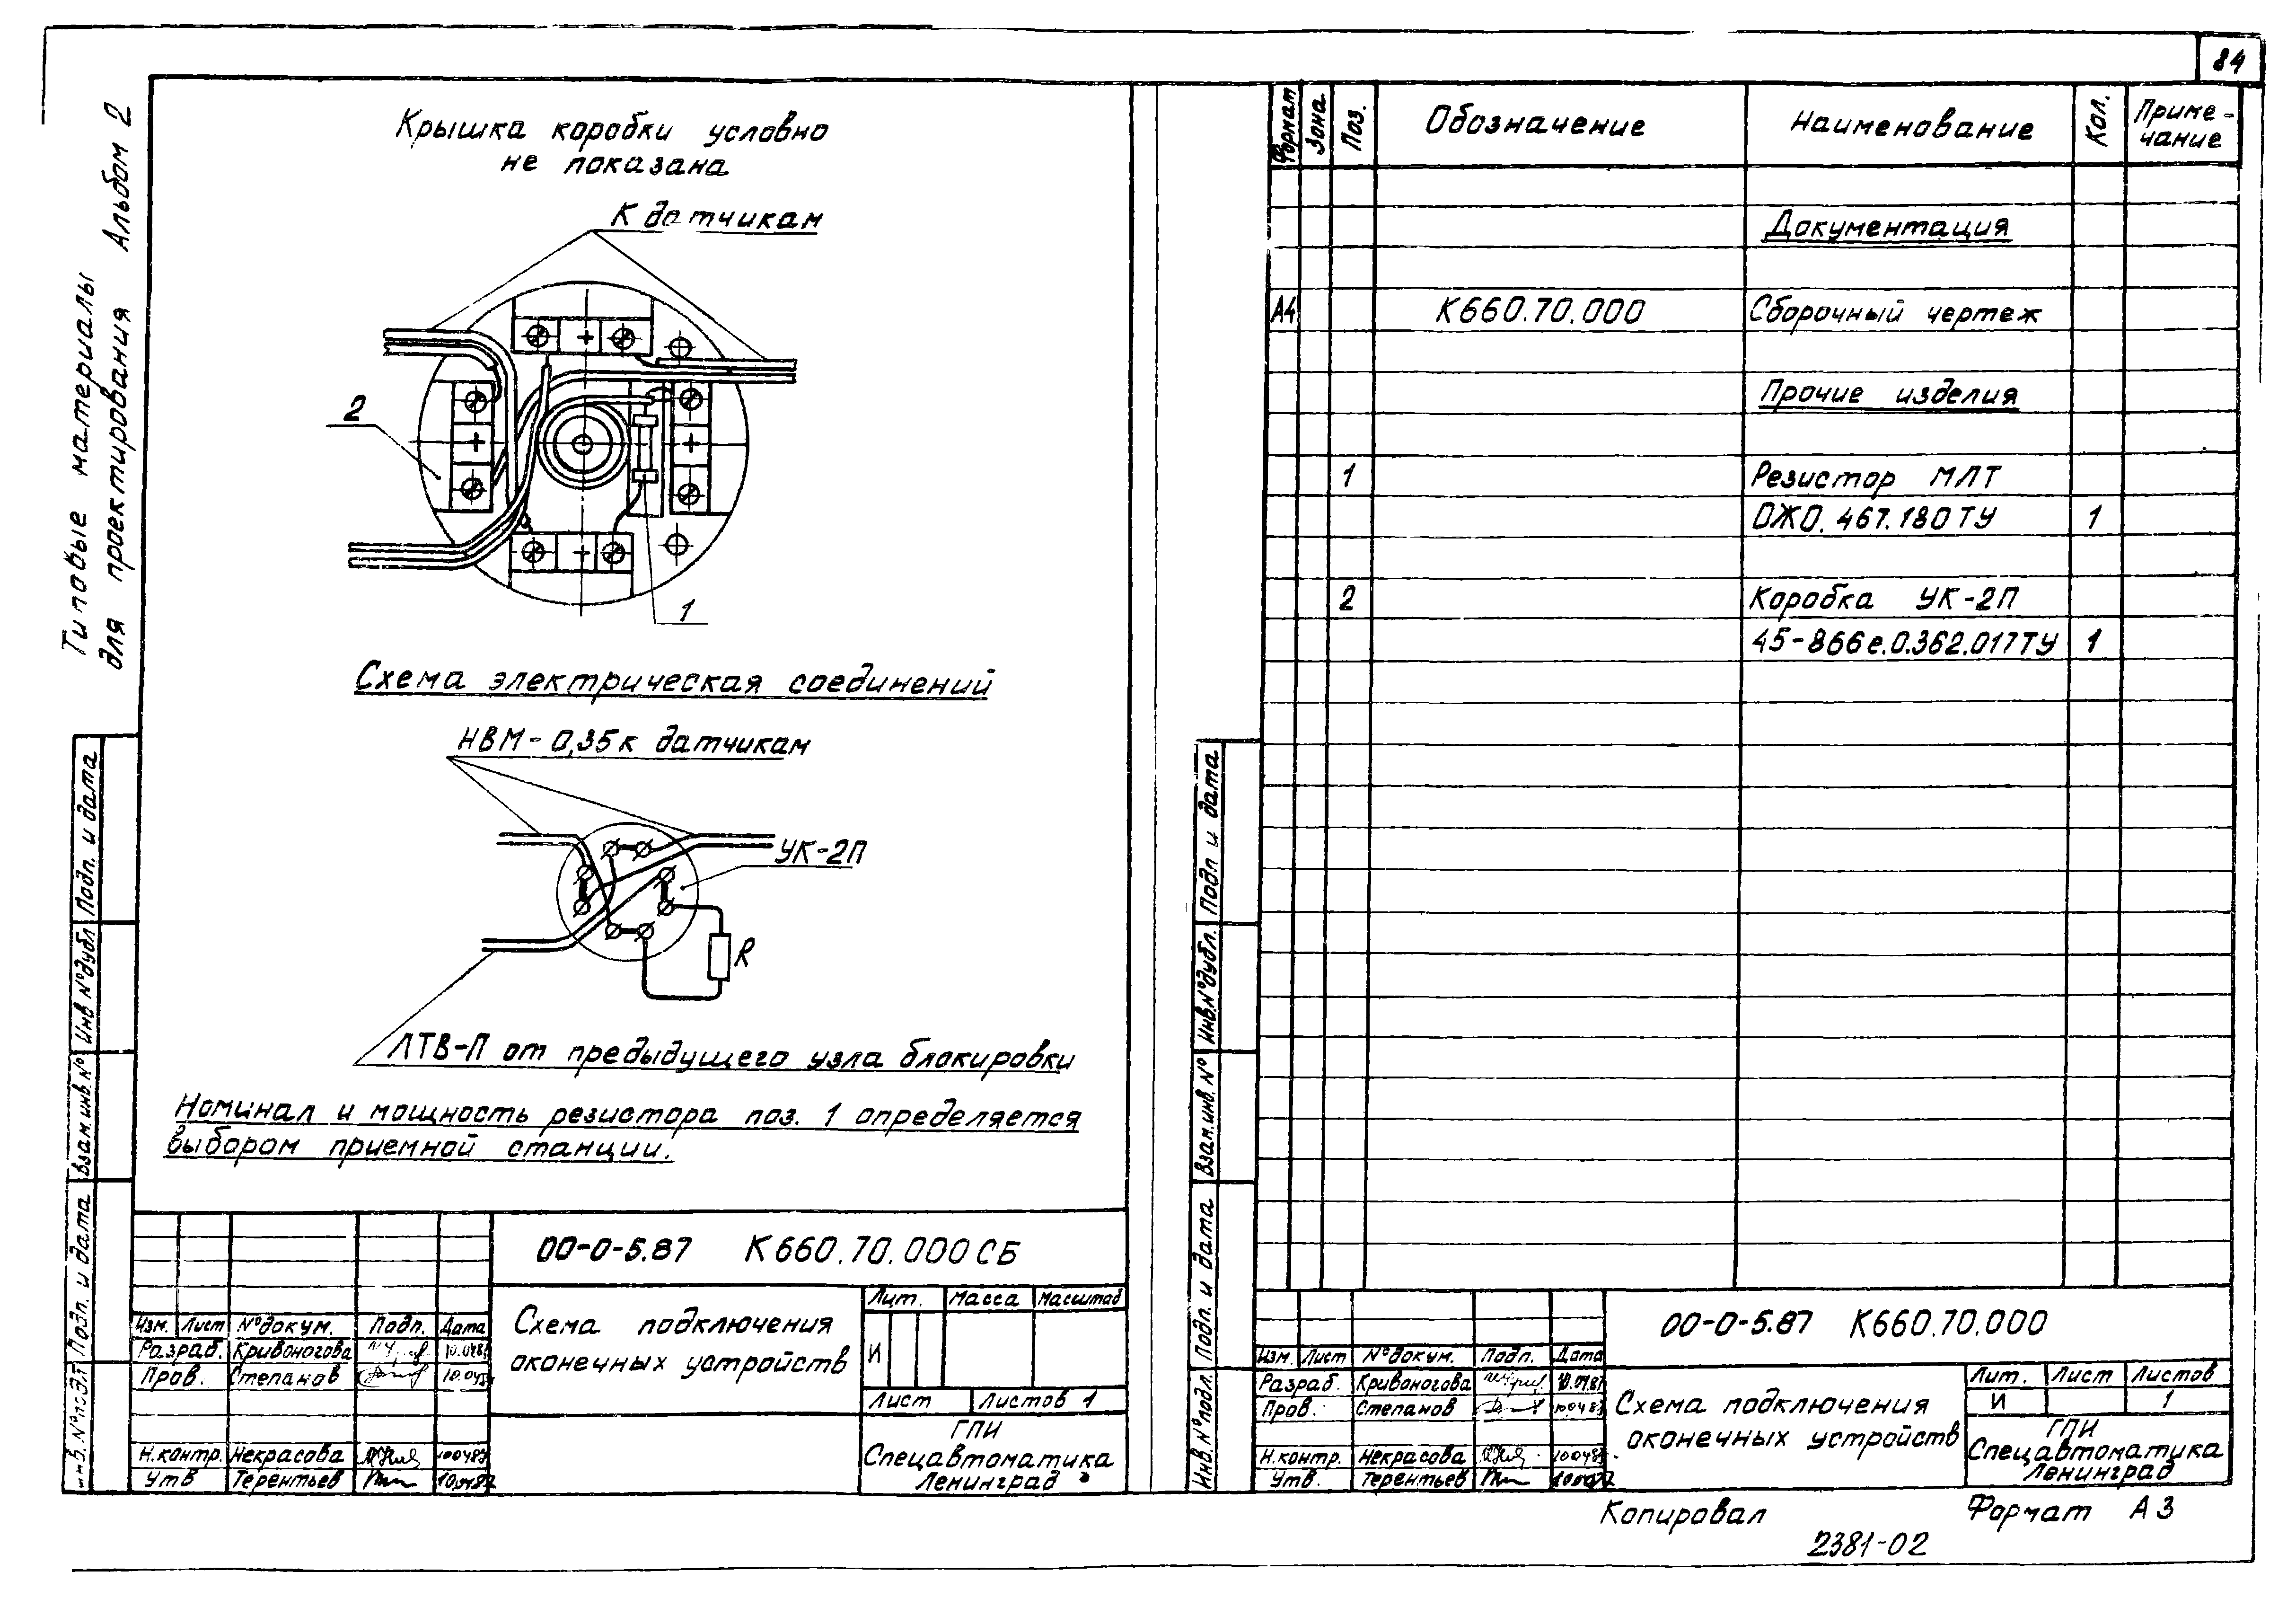 84
Типовые материалы
для проектирования Альбом 2
Крышка коробки условно
не показана
К датчикам
2
1
Схема электрическая соединений
НВМ-0,35к датчикам
УК-2П
R
ЛТВ-П от предыдущего узла блокировки
Номинал и мощность резистора поз. 1 определяется
выбором приемной станции.
Подп. и дата
Инв №дубл
Взам.инв.№
Подп. и дата
Инв.№подл
00-0-5.87 К660.70.000СБ
Схема подключения
оконечных устройств
Лит. Масса Масштаб
И
Лист Листов 1
ГПИ
Спецавтоматика
Ленинград
Изм. Лист №докум. Подп. Дата
Разраб. Кривоногова 10.0487
Пров. Степанов
Н.контр. Некрасова 100487
Утв Терентьев 10.0487
Формат Зона Поз. Обозначение Наименование Кол. Приме-
чание
Документация
А4 К660.70.000 Сборочный чертеж
Прочие изделия
1 Резистор МЛТ
ОЖО.467.180ТУ 1
2 Коробка УК-2П
45-866е.0.362.017ТУ 1
Подп и дата
Инв.№дубл.
Взам.инв.№
Подп. и дата
Инв.№подл.
00-0-5.87 К660.70.000
Схема подключения
оконечных устройств
Лит. Лист Листов
И 1
ГПИ
Спецавтоматика
Ленинград
Изм. Лист №докум. Подп. Дата
Разраб. Кривоногова 10.0487
Пров. Степанов 100487
Н.контр. Некрасова 100487
Утв. Терентьев
Копировал Формат А3
2381-02